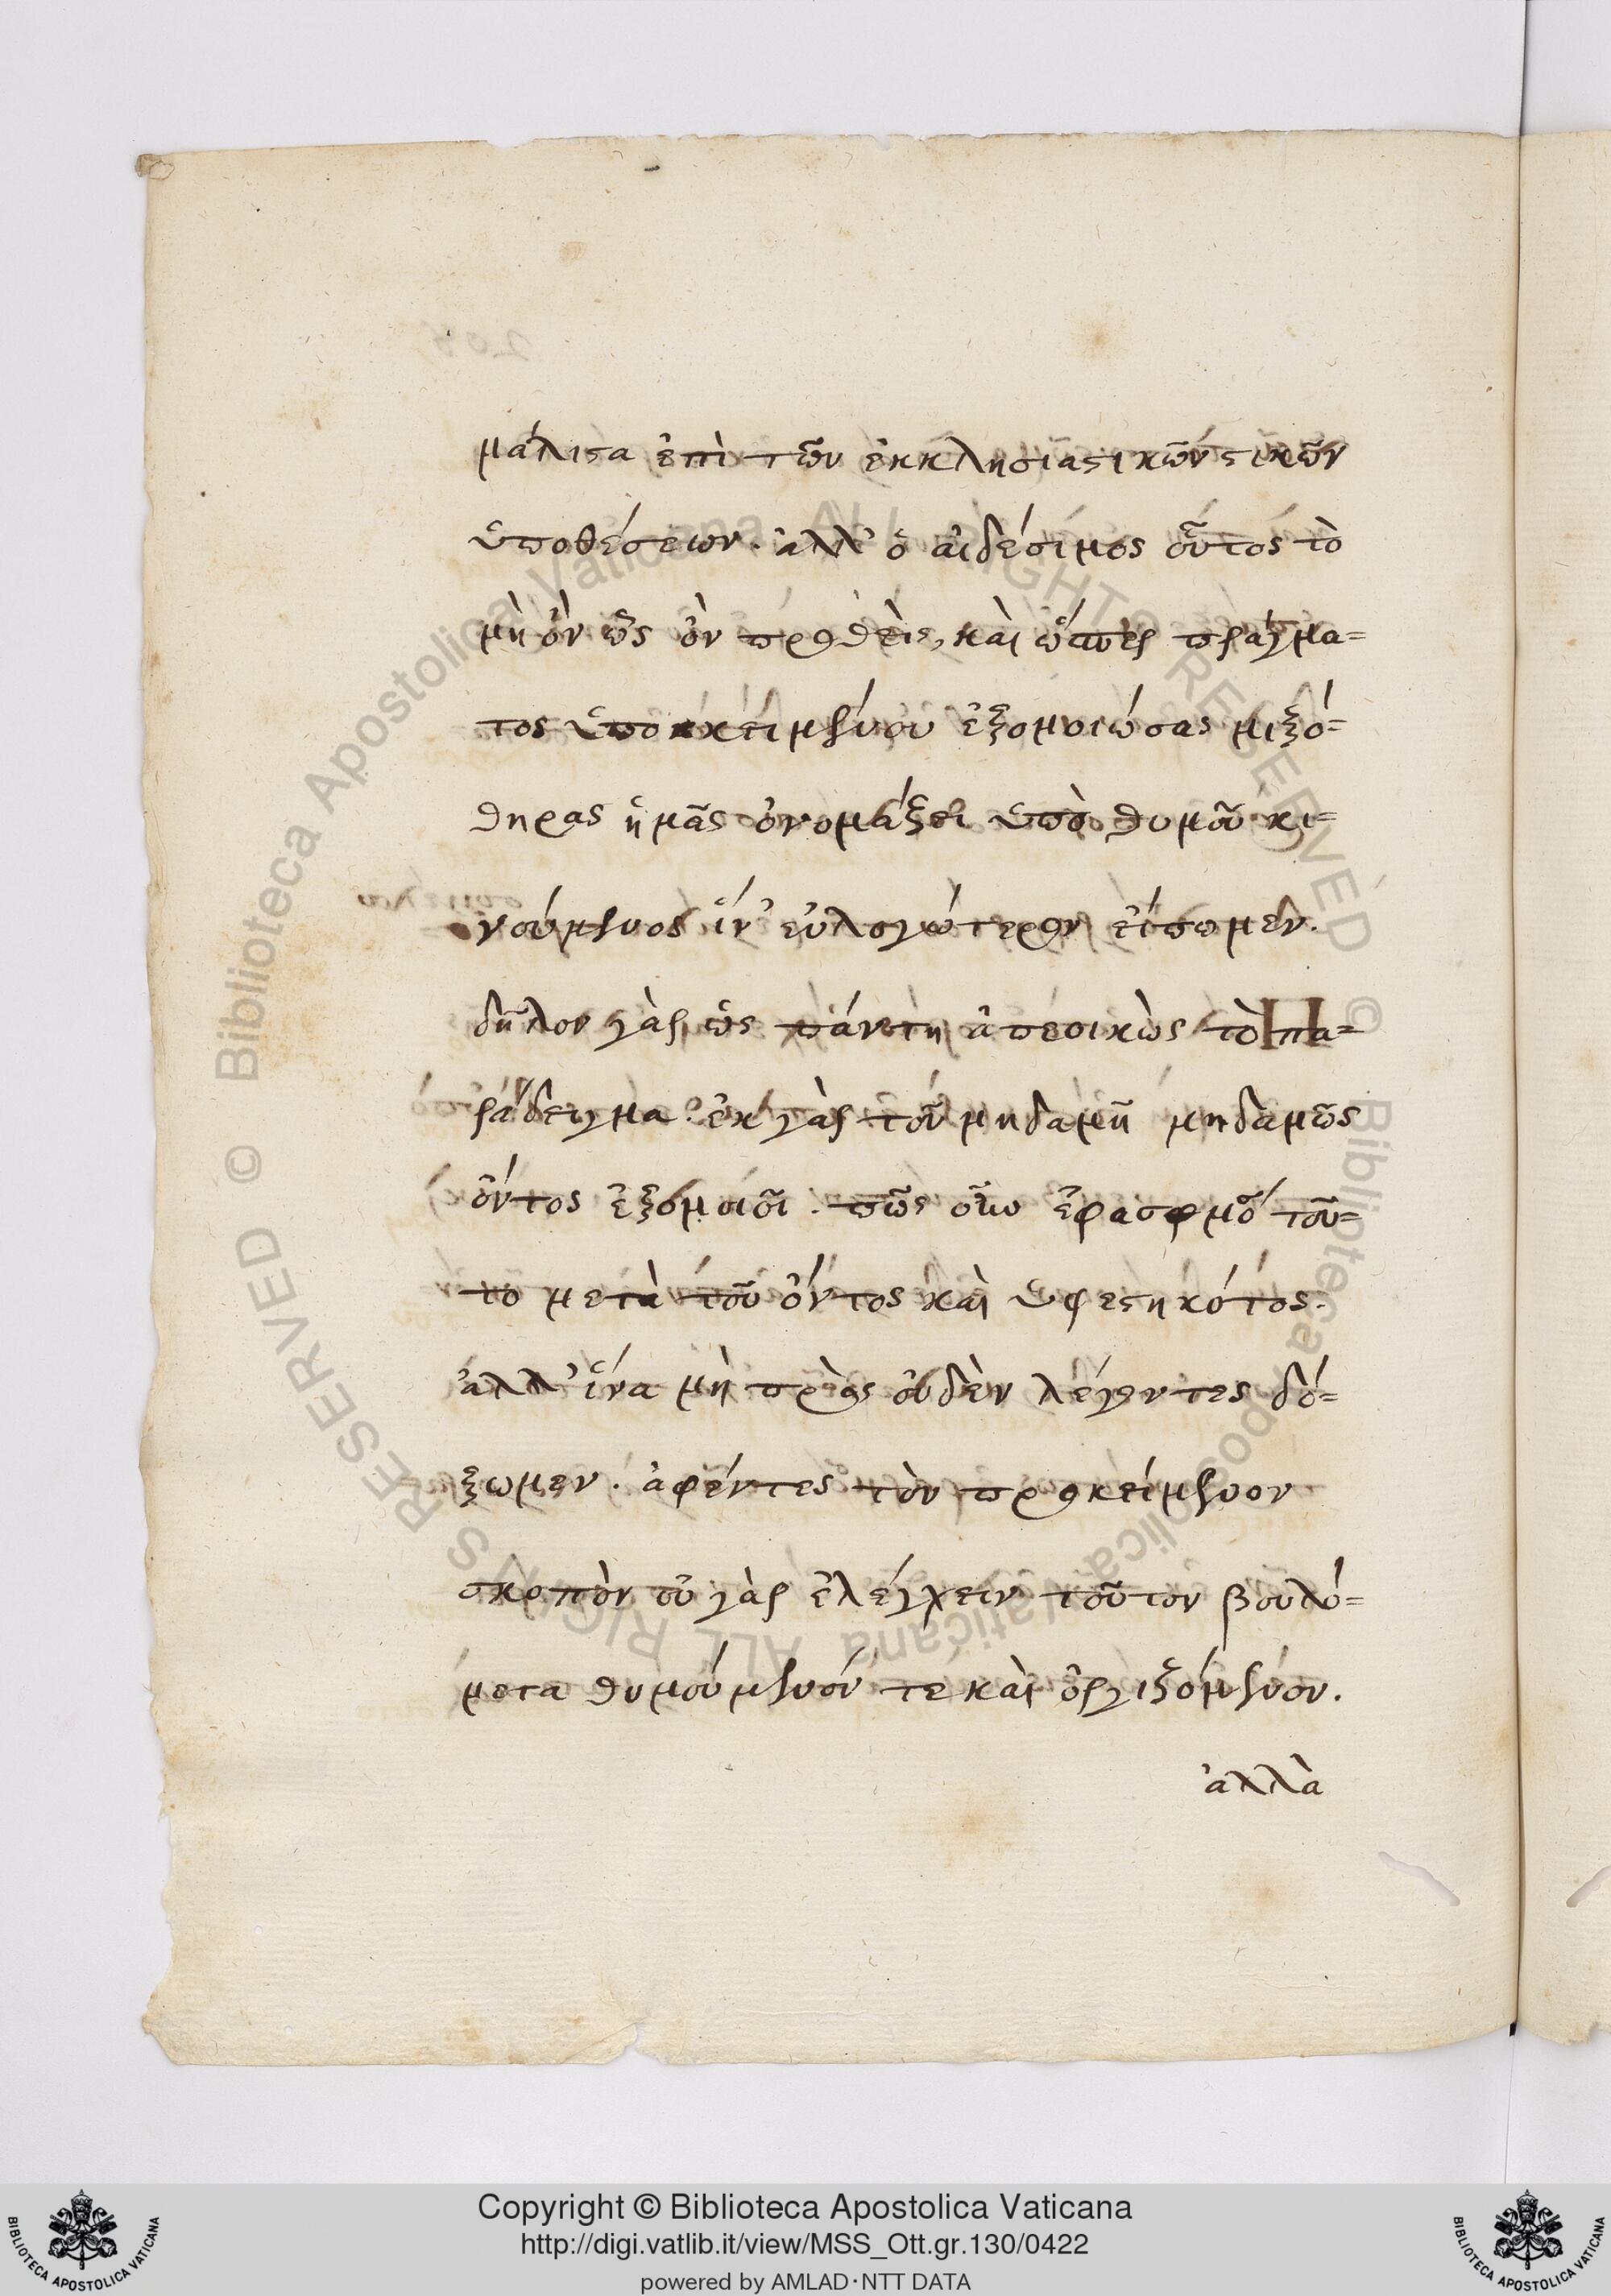 μάλιστα ἐπὶ τῶν ἐκκλησιαστικῶν
ὑποθέσεων. ἀλλ' ὁ αἰδέσιμος οὗτος τὸ
μὴ ὂν ὡς ὂν προθεὶς, καὶ ὥσπερ πράγμα=
τος ὑποκειμένου ἐξομοιώσας μιξό=
θηρας ἡμᾶς ὀνομάζει ὑπὸ θυμοῦ κι=
νούμενος ἵν' εὐλογώτερον εἴπωμεν.
δῆλον γὰρ ὡς πάντη ἀπεοικὼς τὸ πα=
ράδειγμα. ἐκ γὰρ τοῦ μηδαμῆ μηδαμῶς
ὄντος ἐξομοιοῖ. πῶς οὖν τοῦ=
το μετὰ τοῦ ὄντος καὶ ὑφεστηκότος.
ἀλλ' ἵνα μὴ πρὸς οὐδὲν λέγοντες δό=
ξωμεν. ἀφέντες τὸν προκείμενον
σκοπὸν οὐ γὰρ ἐλέγχειν τοῦτον βουλό=
μετα θυμούμενόν τε καὶ ὀργιζόμενον.
ἀλλὰ
Copyright © Biblioteca Apostolica Vaticana
http://digi.vatlib.it/view/MSS_Ott.gr.130/0422
powered by AMLAD·NTT DATA
© Biblioteca Apostolica Vaticana ALL RIGHTS RESERVED
© Biblioteca Apostolica Vaticana ALL RIGHTS RESERVED
BIBLIOTECA APOSTOLICA VATICANA
BIBLIOTECA APOSTOLICA VATICANA